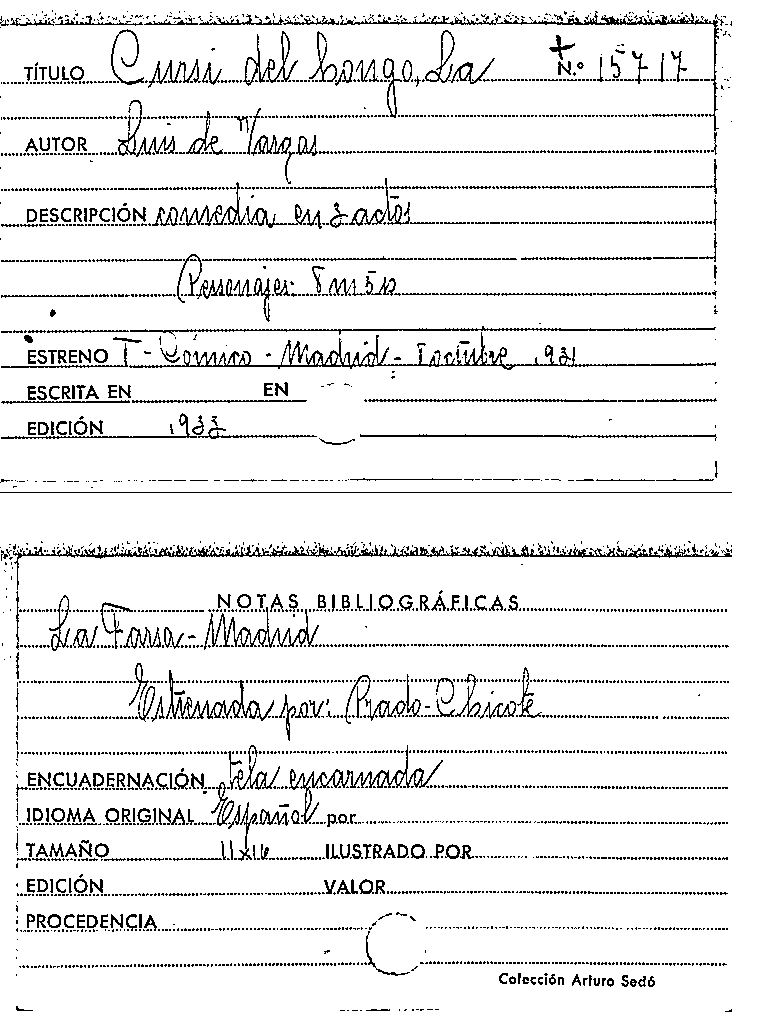 TÍTULO Cursi del hongo, La N.º 15717
AUTOR Luis de Vargas
DESCRIPCIÓN comedia en 3 actos
Personajes: 8 m 5 p
ESTRENO T - Cómico - Madrid - 8 octubre 1931
ESCRITA EN EN
EDICIÓN 1933
NOTAS BIBLIOGRÁFICAS
La Farsa - Madrid
Estrenada por: Prado-Chicote
ENCUADERNACIÓN tela encarnada
IDIOMA ORIGINAL Español por
TAMAÑO 11x16 ILUSTRADO POR
EDICIÓN VALOR
PROCEDENCIA
Colección Arturo Sedó